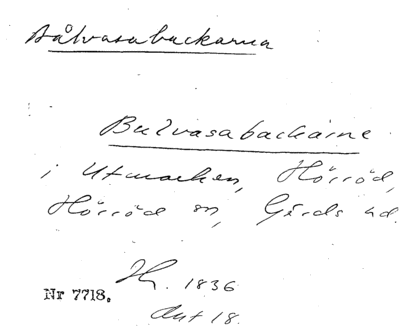 Bålvasabackarna
Bulvasabackarne
i Utmarken, Hörröd,
Hörröd sn, Gärds hd.
1836
Nr 7718.
Akt 18.